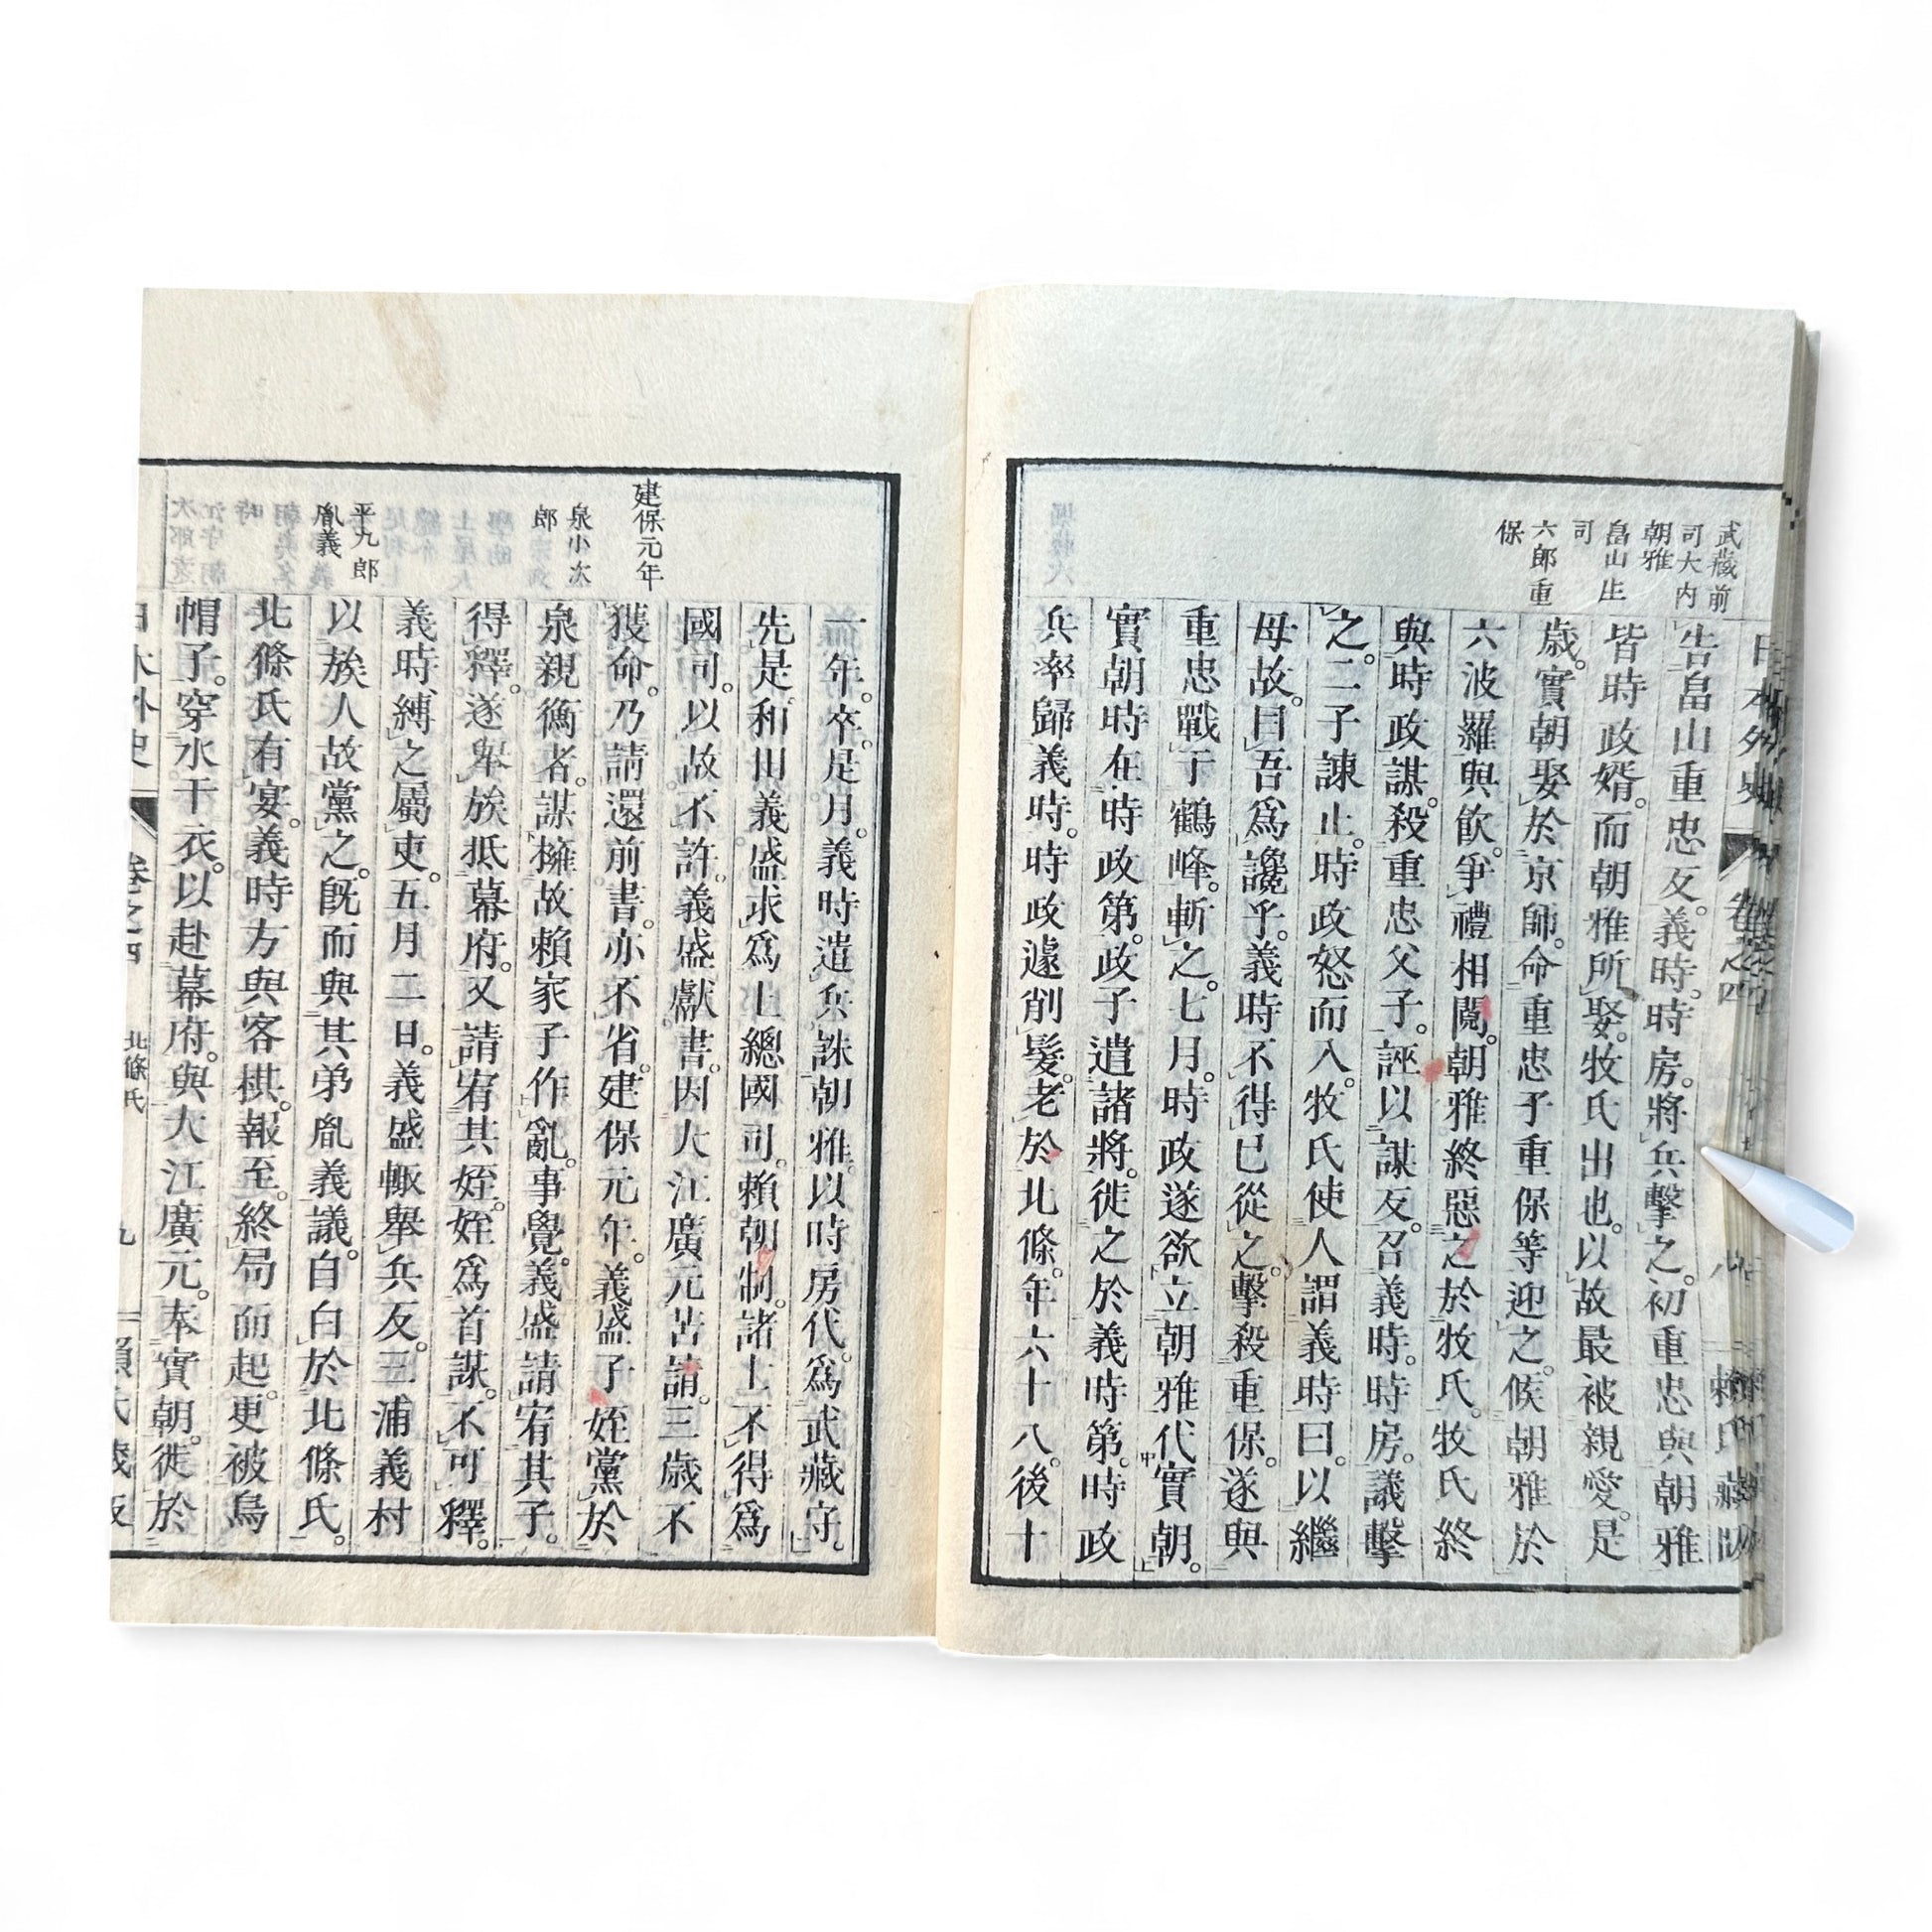 日本外史 卷之四 賴氏藏版
武藏前
司大内
朝雅
畠山庄
司
六郎重
保
告畠山重忠反。義時時房。將兵擊之。初重忠與朝雅
皆時政婿。而朝雅所娶。牧氏出也。以故最被親愛。是
歳。實朝娶於京師。命重忠子重保等迎之。候朝雅於
六波羅與飮。爭禮相鬩。朝雅終惡之於牧氏。牧氏終
與時政謀。殺重忠父子。誣以謀反。召義時。時房。議擊
之。二子諫止。時政怒而入。牧氏使人謂義時曰。以繼
母故。曰吾爲讒乎。義時不得已從之。擊殺重保。遂與
重忠戰于鶴峰。斬之。七月。時政遂欲立朝雅代實朝。
實朝時在時政第。政子遣諸將。徙之於義時第。時政
兵率歸義時。時政遽削髮。老於北條。年六十八。後十
一年。卒。是月。義時遣兵誅朝雅。以時房代。爲武藏守。
先是。和田義盛求爲上總國司。賴朝制。諸士不得爲
國司。以故不許。義盛獻書。因大江廣元苦請。三歳不
建保元年
獲命。乃請還前書。亦不省。建保元年。義盛子姪黨於
泉小次
郎
泉親衡者。謀擁故賴家子作亂。事覺。義盛請宥其子。
得釋。遂率族抵幕府。又請宥其姪。姪爲首謀。不可釋。
義時縛之屬吏。五月二日。義盛輙舉兵反。三浦義村
平九郎
胤義
以族人故黨之。旣而與其弟胤義議。自白於北條氏。
北條氏有宴。義時方與客棋。報至。終局而起。更被烏
帽子。穿水干衣。以赴幕府。與大江廣元。奉實朝。徙於
日本外史 卷之四 北條氏 九 賴氏藏版